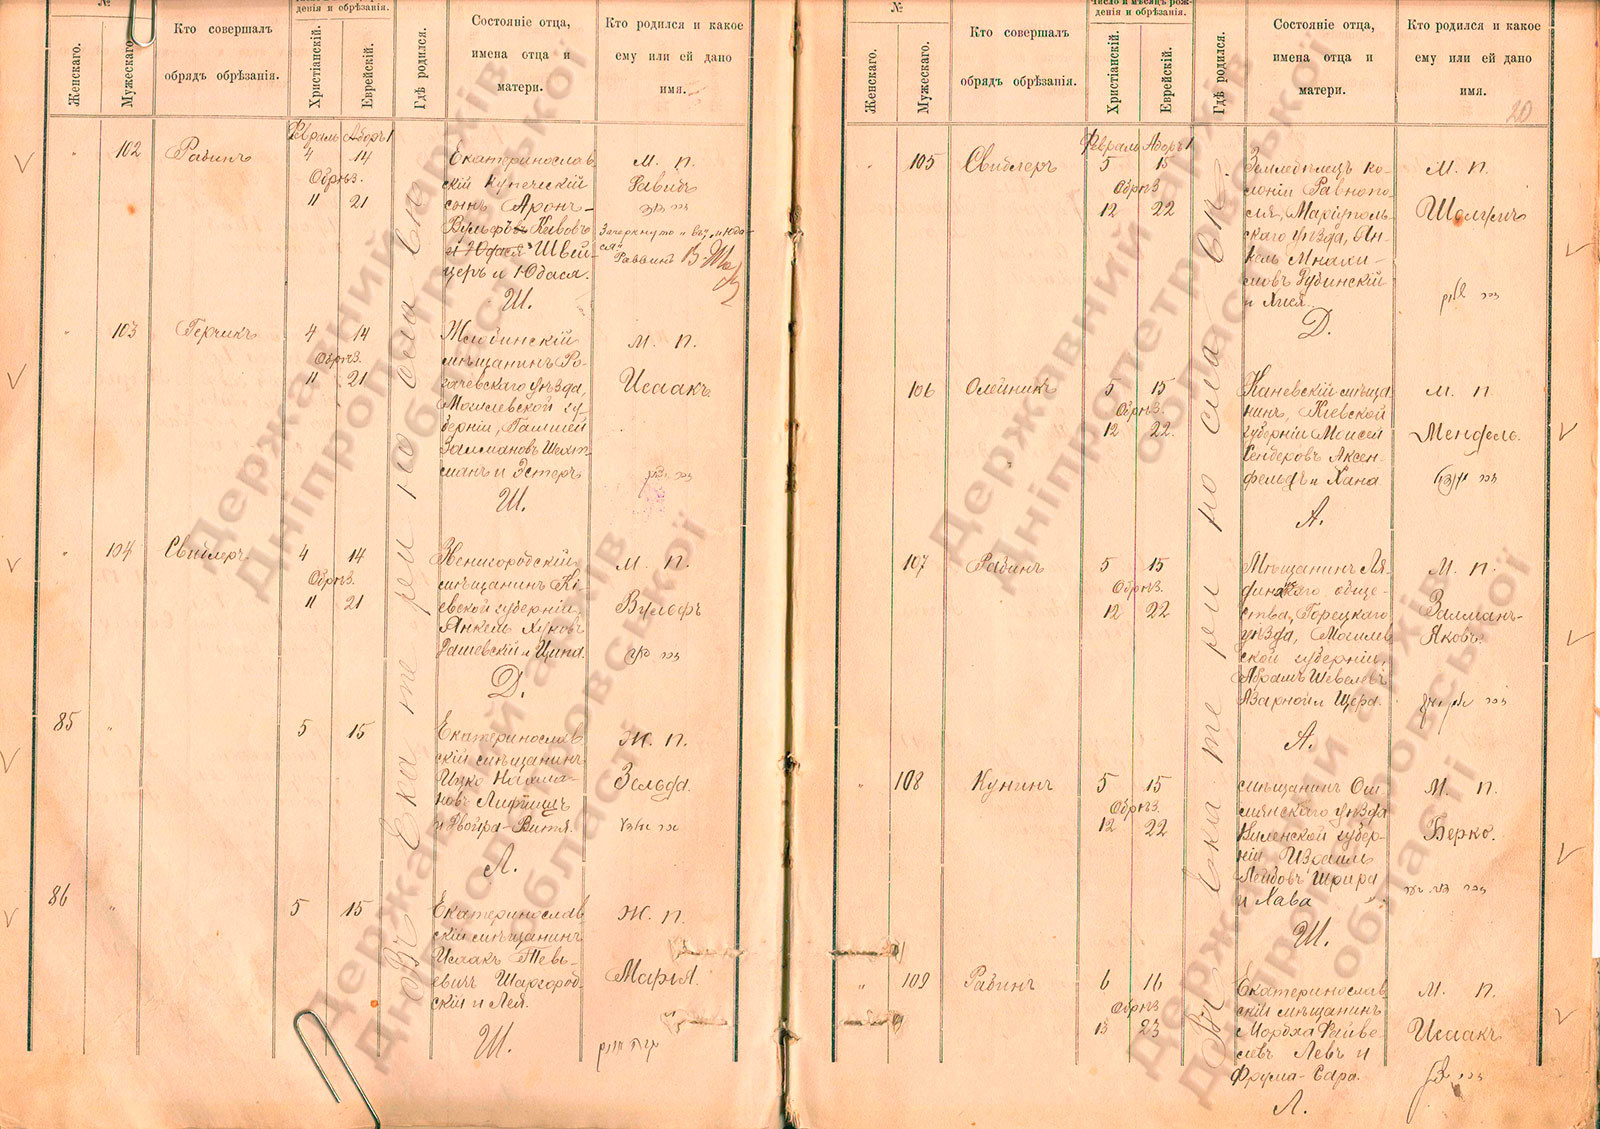 №
Женскаго.
Мужескаго.
Кто совершалъ
обрядъ обрѣзанія.
рожденія и обрѣзанія.
Христіанскій.
Еврейскій.
Гдѣ родился.
Состояніе отца,
имена отца и
матери.
Кто родился и какое
ему или ей дано
имя.
Въ Екатеринославѣ
102
Рабинъ
Февраль Адоръ 1
4 14
Обрѣз.
11 21
Екатеринослав
скій купеческій
сынъ Аронъ-
Вульфъ Кивовъ
и Юдася Швей-
церъ и Юдася.
Ш.
М. п.
Давидъ
דוד
Зачеркнуто
Раввинъ
103
Герчикъ
4 14
Обрѣз.
11 21
Жлобинскій
мѣщанинъ Ро-
гачевскаго уѣзда,
Могилевской гу-
берніи,
Залмановъ Шехт
манъ и Эстеръ
Ш.
М. п.
Исаакъ.
104
Свидлеръ
4 14
Обрѣз.
11 21
Звенигородскій
мѣщанинъ Кі-
евской губерніи,
Янкель Хуновъ
Рашевскій и Ципа.
Д.
М. п.
Вульфъ
85
5 15
Екатеринослав
скій мѣщанинъ
Ицко Нахма-
новъ Лифшицъ
и Двойра-Витя.
Л.
Ж. п.
Зельда.
86
5 15
Екатеринослав
скій мѣщанинъ
Исаакъ Тевь-
евичъ Шаргород-
скій и Лея.
Ш.
Ж. п.
Марія.
№
Женскаго.
Мужескаго.
Кто совершалъ
обрядъ обрѣзанія.
Число и мѣсяцъ рож-
денія и обрѣзанія.
Христіанскій.
Еврейскій.
Гдѣ родился.
Состояніе отца,
имена отца и
матери.
Кто родился и какое
ему или ей дано
имя.
20
105
Свидлеръ
Февраль Адоръ 1
5 15
Обрѣз
12 22
Земледѣлецъ ко-
лоніи Равнопо-
ля, Маріуполь
скаго уѣзда, Ян-
кель Мнахи-
мовъ Рубинскій
и Хися.
Д.
М. п.
106
Олейникъ
5 15
Обрѣз.
12 22.
Каневскій мѣща
нинъ, Кіевской
губерніи Моисей
Сендеровъ Аксен-
фельдъ и Хана
А.
М. п.
Мендель.
107
Рабинъ
5 15
Обрѣз.
12 22
Мѣщанинъ Ля-
динскаго обще-
ства, Горецкаго
уѣзда, Могилев
ской губерніи,
Абрамъ Шевелевъ
Азарной и Щера.
А.
М. п.
Залманъ-
Яковъ.
108
Кунинъ
5 15
Обрѣз.
12 22
мѣщанинъ Ош
мянскаго уѣзда
Виленской губер-
ніи Израиль
Лейбовъ Шрира
и Хава
Ш.
М. п.
Берко.
109
Рабинъ
6 16
Обрѣз
13 23
Екатеринослав
скій мѣщанинъ
Мордха Фейве-
левъ Левъ и
Фрума-Сара.
Л.
М. п.
Исаакъ
Въ Екатеринославѣ
Державний архів
Дніпропетровської
області